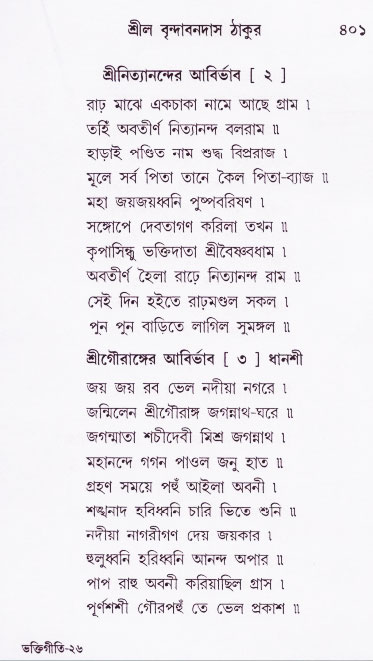 শ্রীল বৃন্দাবনদাস ঠাকুর ৪০১
শ্রীনিত্যানন্দের আবির্ভাব [ ২ ]
রাঢ় মাঝে একচাকা নামে আছে গ্রাম ।
তহিঁ অবতীর্ণ নিত্যানন্দ বলরাম ॥
হাড়াই পণ্ডিত নাম শুদ্ধ বিপ্ররাজ ।
মূলে সর্ব পিতা তানে কৈল পিতা-ব্যাজ ॥
মহা জয়জয়ধ্বনি পুষ্পবরিষণ ।
সঙ্গোপে দেবতাগণ করিলা তখন ॥
কৃপাসিন্ধু ভক্তিদাতা শ্রীবৈষ্ণবধাম ।
অবতীর্ণ হৈলা রাঢ়ে নিত্যানন্দ রাম ॥
সেই দিন হইতে রাঢ়মণ্ডল সকল ।
পুন পুন বাড়িতে লাগিল সুমঙ্গল ॥
শ্রীগৌরাঙ্গের আবির্ভাব [ ৩ ] ধানশী
জয় জয় রব ভেল নদীয়া নগরে ।
জন্মিলেন শ্রীগৌরাঙ্গ জগন্নাথ-ঘরে ॥
জগন্মাতা শচীদেবী মিশ্র জগন্নাথ ।
মহানন্দে গগন পাওল জনু হাত ॥
গ্রহণ সময়ে পহুঁ আইলা অবনী ।
শঙ্খনাদ হরিধ্বনি চারি ভিতে শুনি ॥
নদীয়া নাগরীগণ দেয় জয়কার ।
হুলুধ্বনি হরিধ্বনি আনন্দ অপার ॥
পাপ রাহু অবনী করিয়াছিল গ্রাস ।
পূর্ণশশী গৌরপহুঁ তে ভেল প্রকাশ ॥
ভক্তিগীতি-২৬